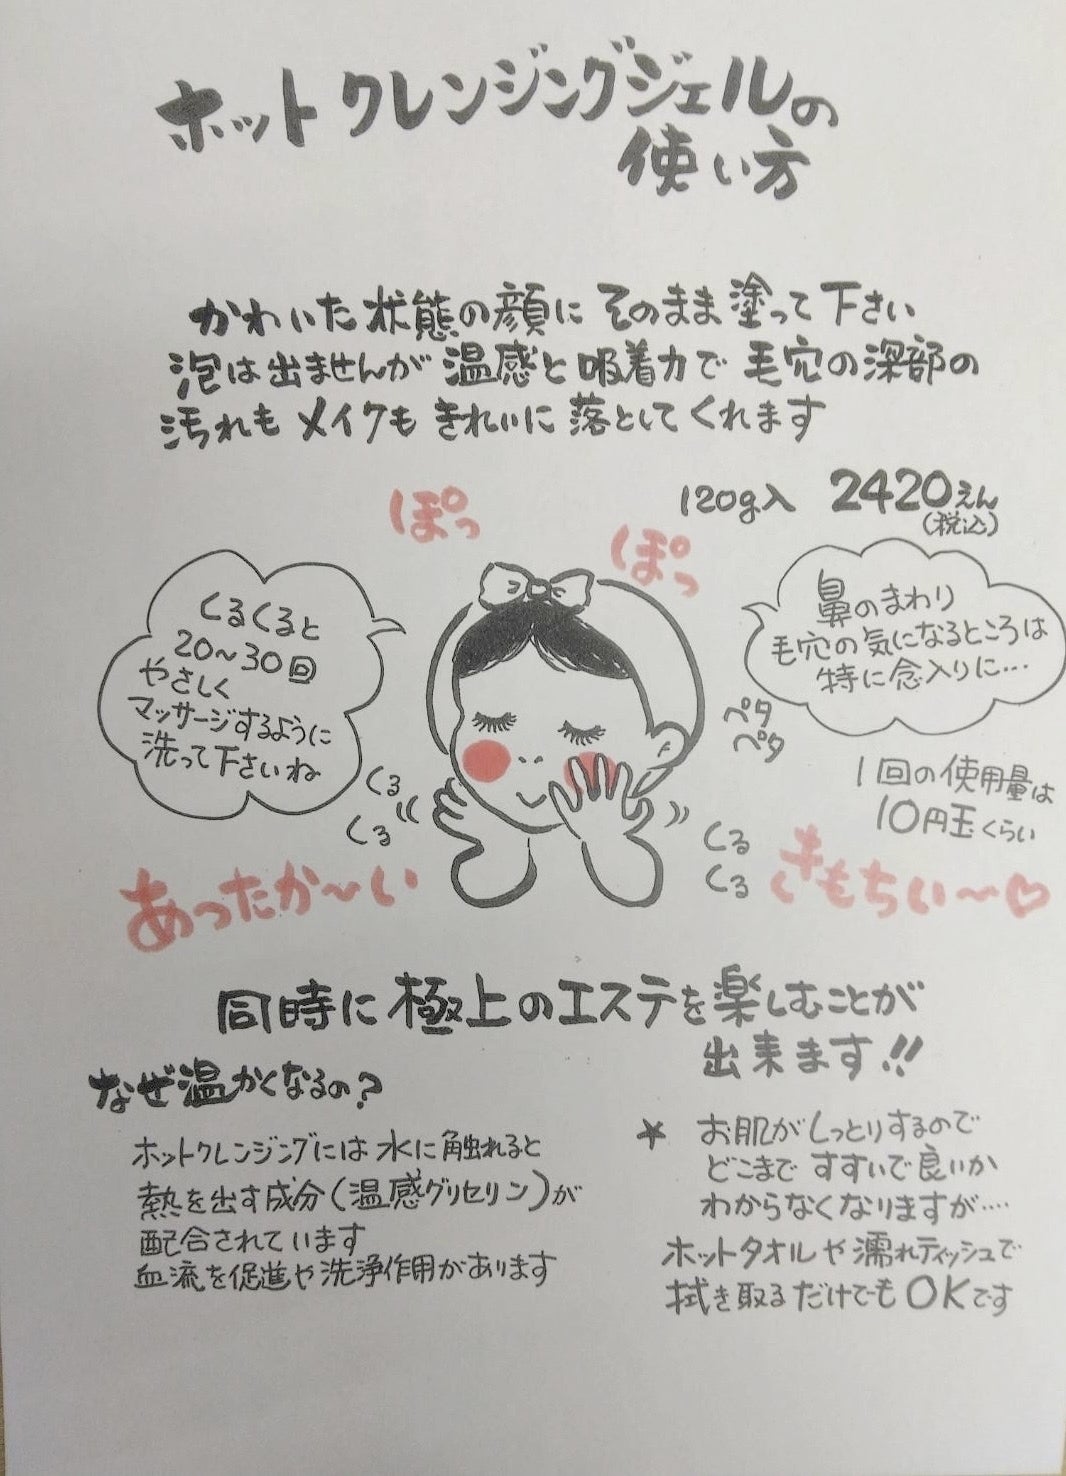 ホットクレンジングジェルの
使い方
かわいた状態の顔にそのまま塗って下さい
泡は出ませんが温感と吸着力で毛穴の深部の
汚れもメイクもきれいに落としてくれます
120g入 2420えん
(税込)
ぽっ
ぽっ
くるくると
20~30回
やさしく
マッサージするように
洗って下さいね
鼻のまわり
毛穴の気になるところは
特に念入りに…
ペタ
ペタ
1回の使用量は
10円玉くらい
くる
くる
くる
くる
あったか~い
きもちい~♡
同時に極上のエステを楽しむことが
出来ます!!
なぜ温かくなるの?
ホットクレンジングには水に触れると
熱を出す成分(温感グリセリン)が
配合されています
血流を促進や洗浄作用があります
* お肌がしっとりするので
どこまですすいで良いか
わからなくなりますが‥‥
ホットタオルや濡れティッシュで
拭き取るだけでもOKです